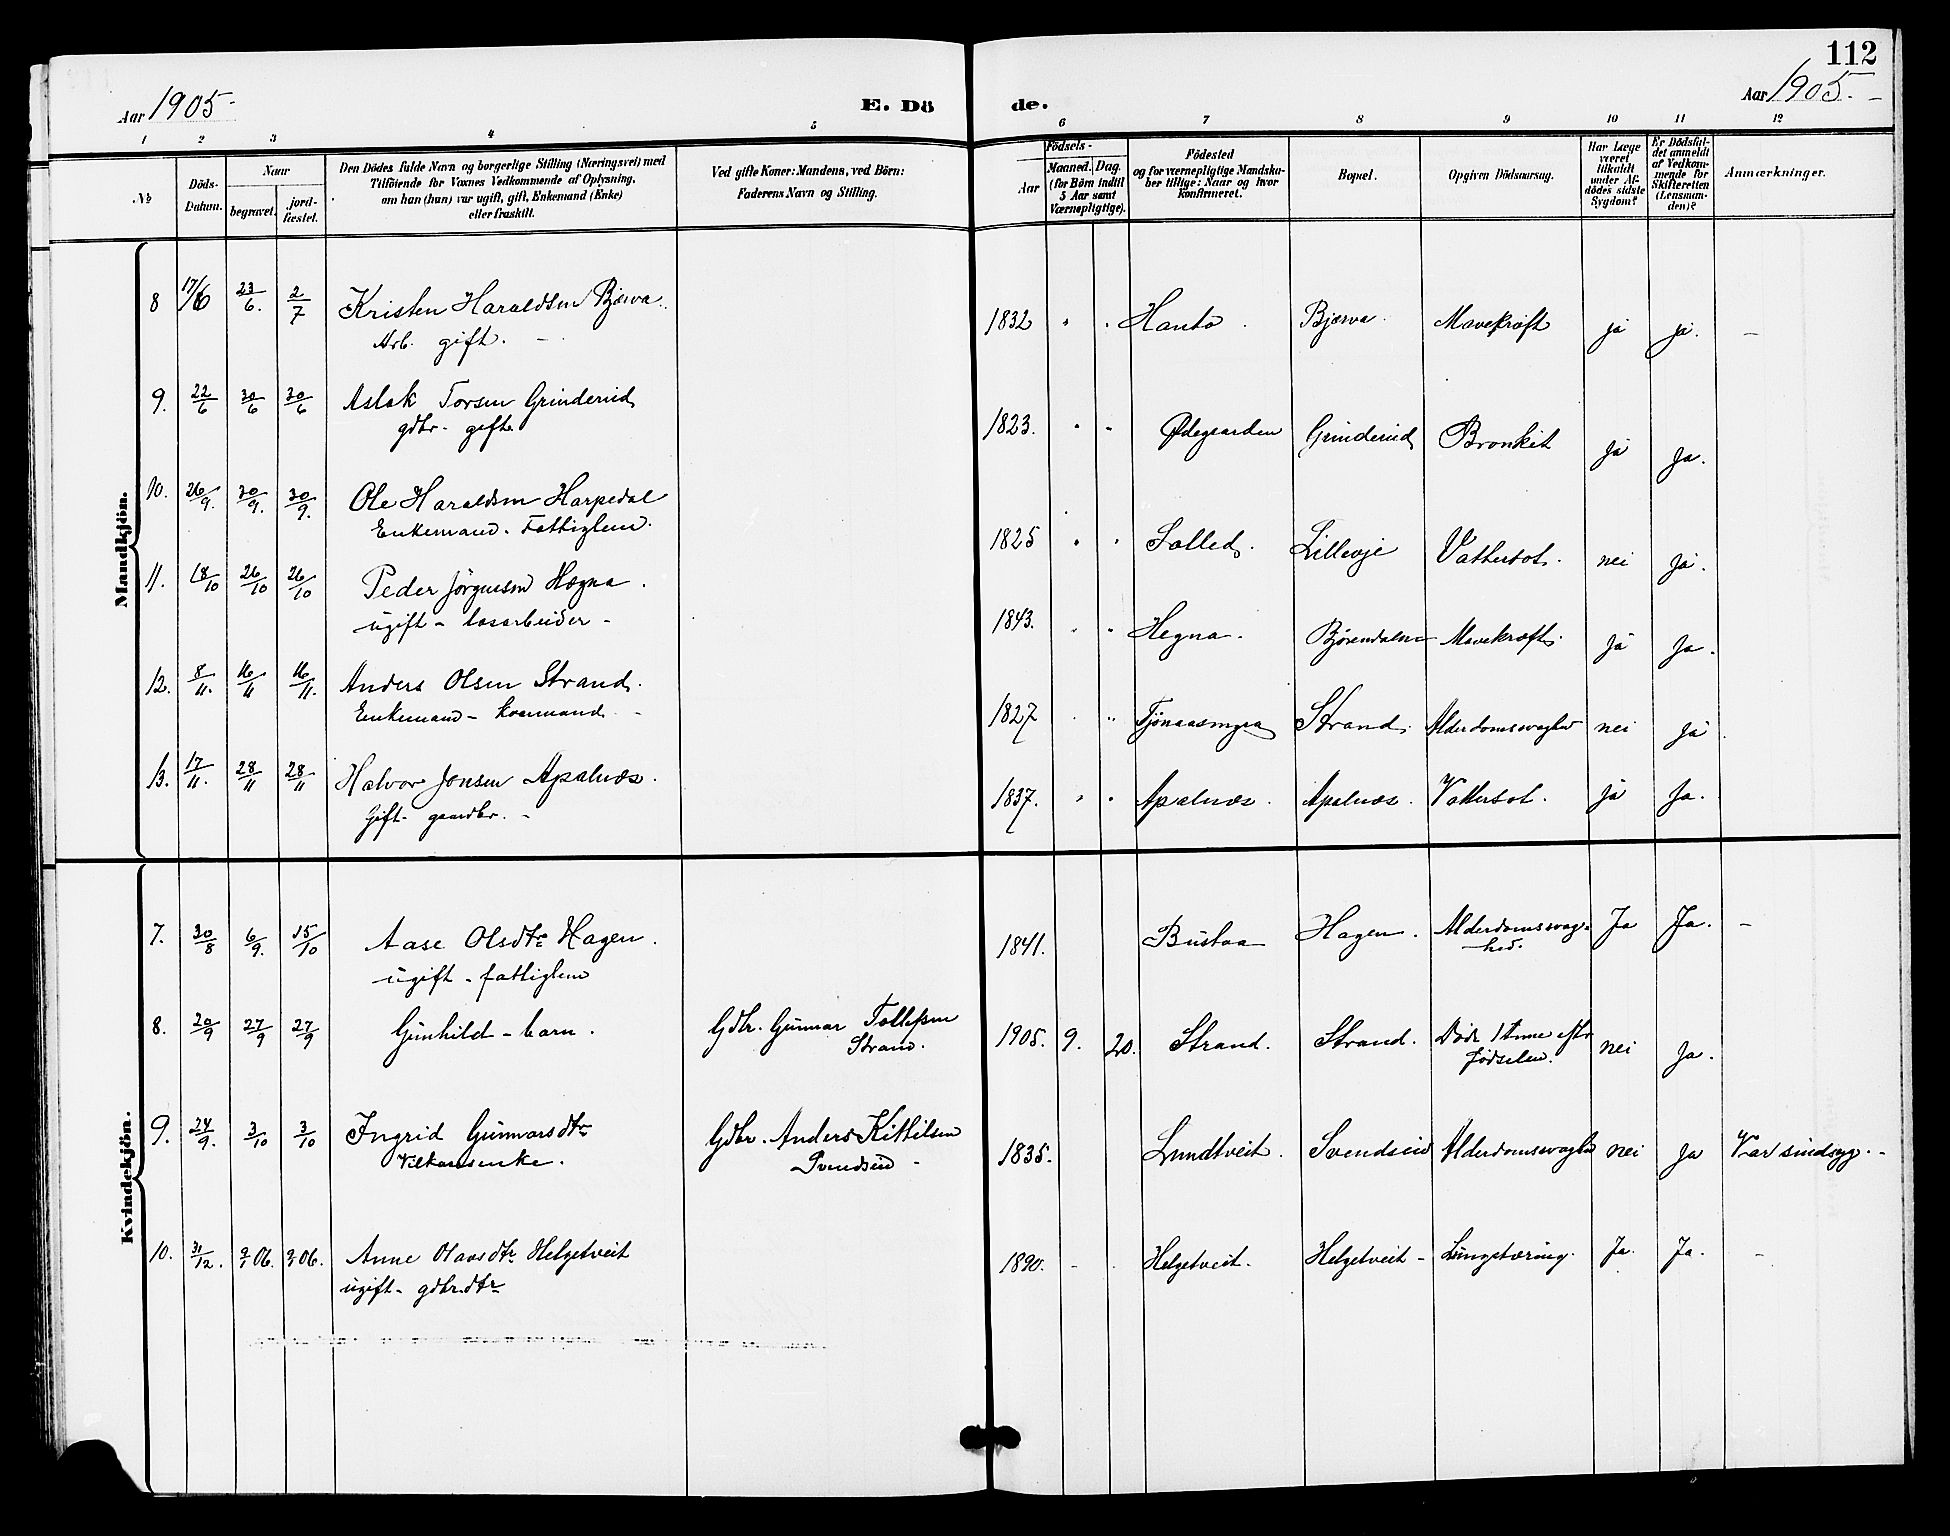 112
Aar 1905.
E. Dö
de.
Aar 1905.
1 2 3 4 5 6 7 8 9 10 11 12
№
Döds-
Datum.
Naar
begravet.
jord-
fæstet.
Den Dödes fulde Navn og borgerlige Stilling (Næringsvei) med
Tilföiende for Voxnes Vedkommende af Oplysning,
om han (hun) var ugift, gift, Enkemand (Enke)
eller fraskilt.
Ved gifte Koner: Mandens, ved Börn:
Faderens Navn og Stilling.
Födsels-
Aar
Maaned.
Dag.
(for Börn indtil
5 Aar samt
Værnepligtige).
Födested
og for værnepligtige Mandska-
ber tillige: Naar og hvor
konfirmeret.
Bopæl.
Opgiven Dödsaarsag.
Har Læge
været
tilkaldt
under Af-
dödes sidste
Sygdom?
Er Dödsfal-
det anmeldt
af Vedkom-
mende for
Skifteretten
(Lensman-
den)?
Anmærkninger.
Mandkjön.
8 17/6 23/6. 2/7 Kristen Haraldsen Bjørva. 1832 " " Hanto. Bjørva. Mavekræft ja ja. —
Arb. gift. —
9. 22/6 30/6 30/6 Aslak Torsen Grinderud 1823. " " Ødegaarden Grinderud Bronkit ja Ja.
gdbr. gift.
10. 26/9. 30/9. 30/9. Ole Haraldsen Harpedal 1825 " " Solled. Lilleøje Vattersot. nei Ja.
Enkemand. Fattiglem.
11. 18/10 26/10 26/10 Peder Jörgensen Hegna. 1843. " " Hegna. Bjørendalen Mavekræft. ja Ja.
ugift - løsarbeider -
12. 8/11. 16/11 16/11. Anders Olsen Strand. 1827 " " Tjönaasmyra Strand. Alderdomssvaghed nei Ja
Enkemand - kaarmand. -
13. 17/11. 28/11 28/11 Halvor Jensen Apalnæs. 1837. " " Apalnæs. Apalnæs. Vattersot. ja Ja.
Gift. gaardbr. -
Kvindekjön.
7. 30/8 6/9. 15/10 Aase Olsdtr Hagen. 1841. Bustaa Hagen. Alderdomssvag-
hed. Ja Ja. —
ugift - fattiglem
8. 20/9 27/9 27/9 Gunhild - barn. Gdbr. Gunnar Tollefsen
Strand. 1905. 9. 20. Strand. Strand. Död 1 time eftr
födselen. nei Ja.
9. 24/9. 3/10 3/10 Ingrid Gunnarsdtr Gdbr. Anders Kittilsen
Svendseid - 1835. Lundtveit. Svendseid Alderdomssvaghed nei Ja Var sindsyg. -
Vilkaarsenke.
10. 31/12. 9/1 06. 9/1 06. Anne Olavsdtr Helgetveit 1890. - Helgetveit. Helgetveit - Lungetæring. Ja. Ja. —
ugift - gdbr.dtr